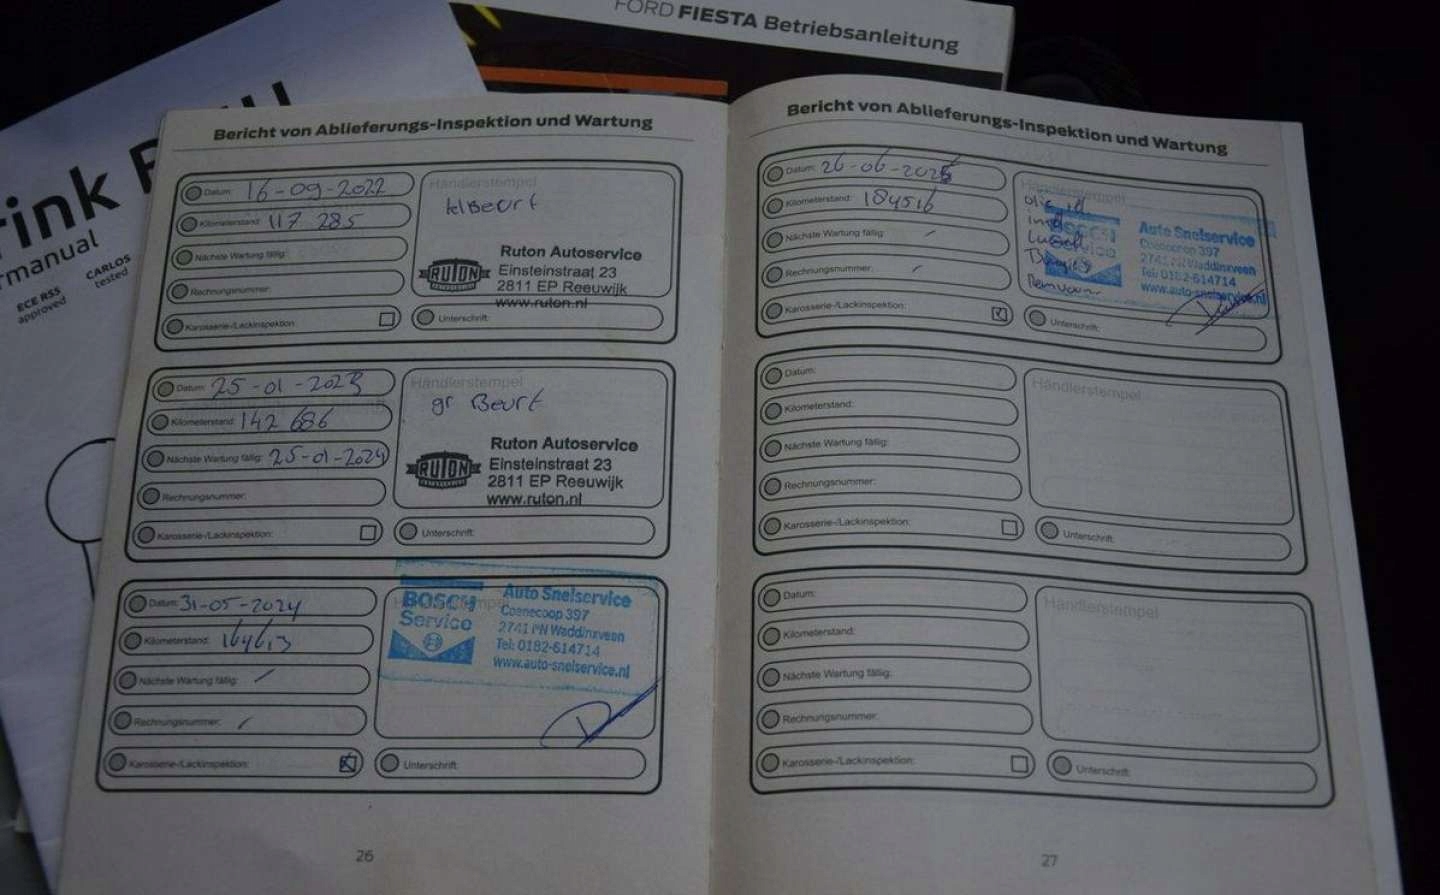 FORD FIESTA Betriebsanleitung
rink
rmanual
ECE RSS
approved
CARLOS
tested
Bericht von Ablieferungs-Inspektion und Wartung
Datum: 16-09-2022
Kilometerstand: 117 285
Nächste Wartung fällig:
Rechnungsnummer:
Karosserie-/Lackinspektion:
Händlerstempel
kl Beurt
Ruton Autoservice
RUTON
Einsteinstraat 23
2811 EP Reeuwijk
www.ruton.nl
Unterschrift:
Datum: 25-01-2023
Kilometerstand: 142 686
Nächste Wartung fällig: 25-01-2024
Rechnungsnummer:
Karosserie-/Lackinspektion:
Händlerstempel
gr Beurt
Ruton Autoservice
RUTON
Einsteinstraat 23
2811 EP Reeuwijk
www.ruton.nl
Unterschrift:
Datum: 31-05-2024
Kilometerstand:
Nächste Wartung fällig: -
Rechnungsnummer: -
Karosserie-/Lackinspektion:
Händlerstempel
BOSCH
Service
Auto Snelservice
Coenecoop 397
2741 PN Waddinxveen
Tel: 0182-614714
www.auto-snelservice.nl
Unterschrift:
26
Bericht von Ablieferungs-Inspektion und Wartung
Datum: 26-06-2025
Kilometerstand: 184516
Nächste Wartung fällig: -
Rechnungsnummer: -
Karosserie-/Lackinspektion:
Händlerstempel
olie
BOSCH
Service
Auto Snelservice
Coenecoop 397
2741 PN Waddinxveen
Tel: 0182-614714
www.auto-snelservice.nl
Unterschrift:
Datum:
Kilometerstand:
Nächste Wartung fällig:
Rechnungsnummer:
Karosserie-/Lackinspektion:
Händlerstempel
Unterschrift:
Datum:
Kilometerstand:
Nächste Wartung fällig:
Rechnungsnummer:
Karosserie-/Lackinspektion:
Händlerstempel
Unterschrift:
27